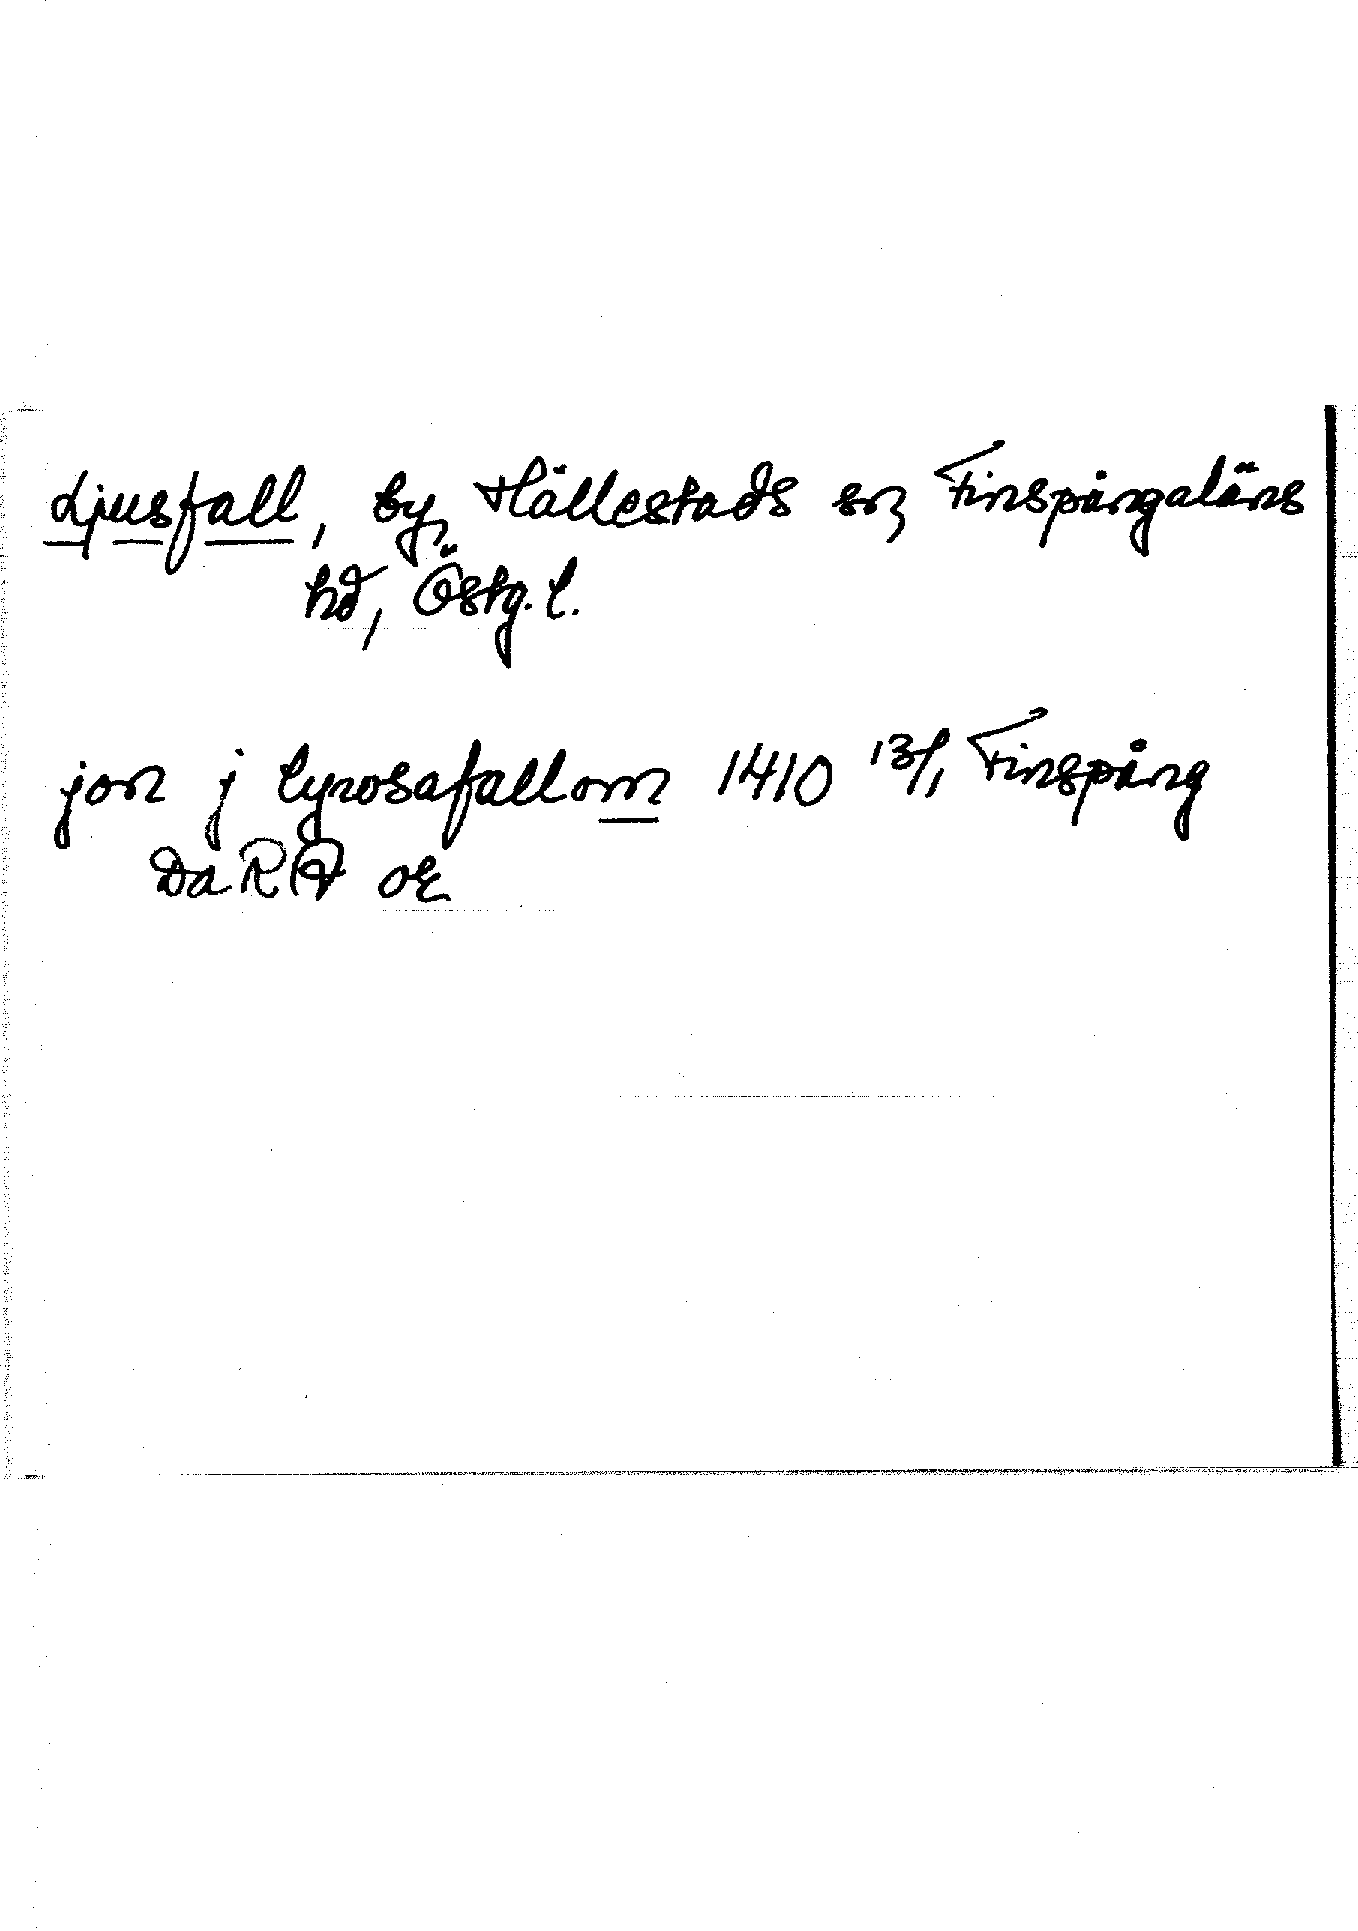 Ljusfall, by, Hällestads sn, Finspångaläns
hd, Östg. l.
jon j lynosafallom 1410 13/1 Finspång
Da RA or